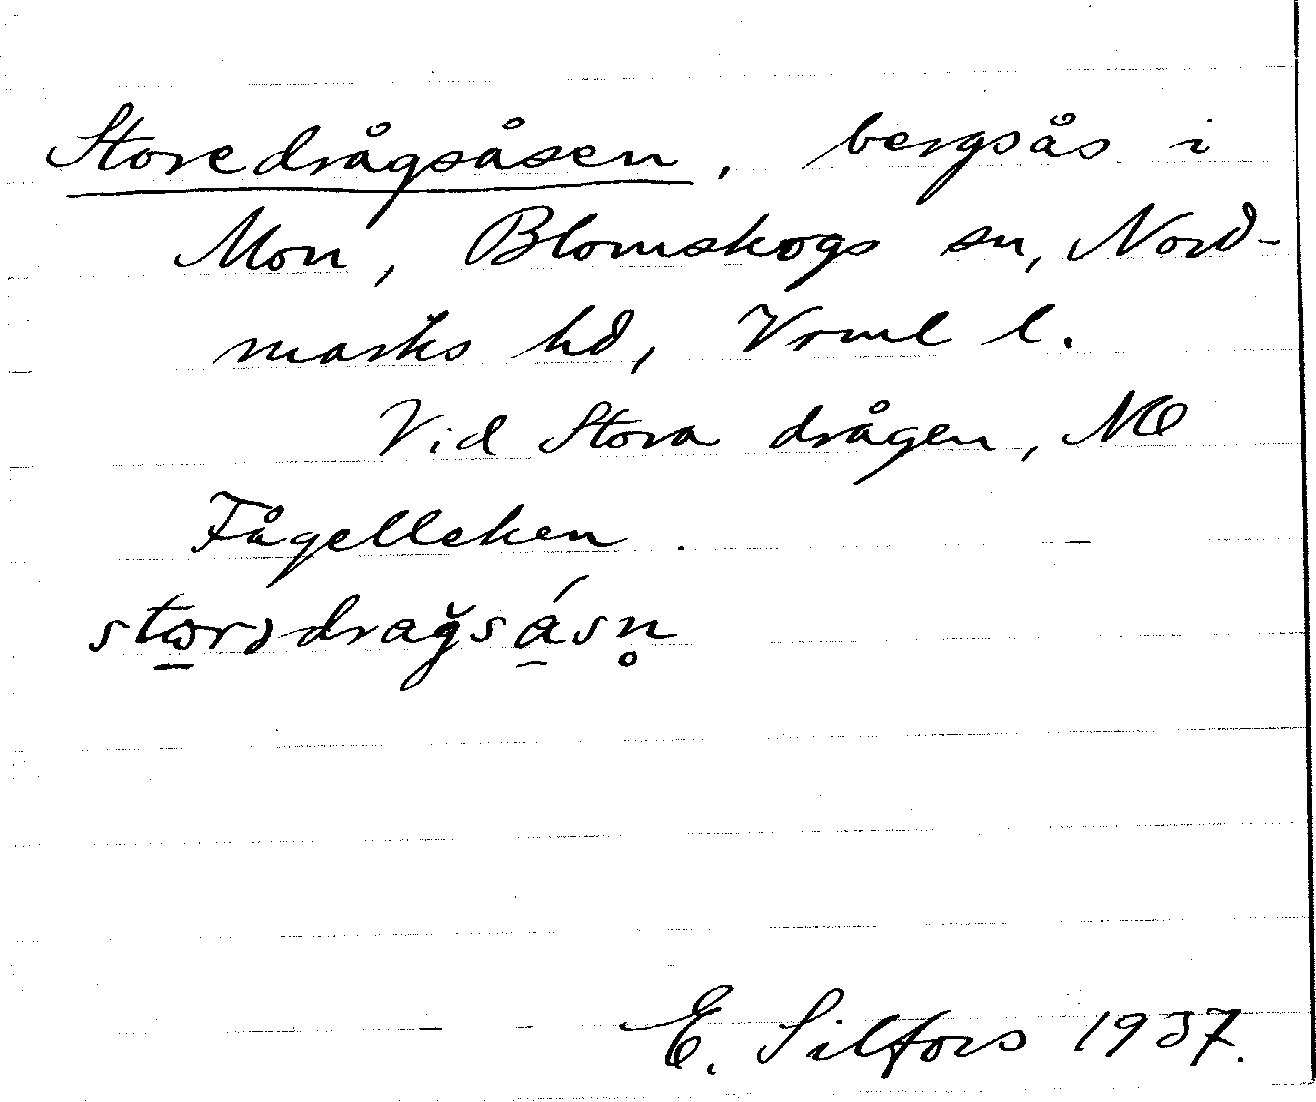 Storedrågsåsen, bergsås i
Mon, Blomskogs sn, Nord-
marks hd, Vrml l.
Vid Stora drågen, NO
Fågelleken.
stωrədragsásn̥
E. Silfors 1937.